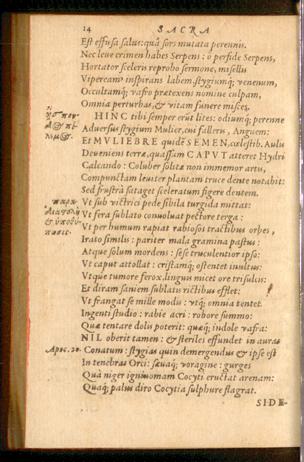 14 SACRA
Est effusa salus: quâ sors mutata perennis.
Nec leve crimen habes Serpens: ô perfide Serpens,
Hortator sceleris reprobo sermone, misellis
Vipeream inspirans labem, stygiumq; venenum,
Occultamq; vafro prætexens nomine culpam,
Omnia perturbas, & vitam funere misces.
HINC tibi semper erūt lites: odiumq; perenne
Adversus stygium Mulier, cui falleris, Anguem:
Et MULIEBRE quidē SEMEN, cœlestib. Aulis
Deveniens terra, quassam CAPUT atteret Hydri
Calcando: Coluber solitæ non immemor artis,
Compunctam leviter plantam truce dente notabit:
Sed frustrà sataget sceleratum figere dentem.
Ut sub victrici pede sibila turgida mittat:
Ut fera sublato convoluat pectore terga:
Ut per humum rapiat rabiosos tractibus orbes,
Irato similis: pariter mala gramina pastus:
Atque solum mordens: sese truculentior ipso:
Ut caput attollat: cristamq; ostentet inultus:
Utque tumore ferox, linguis micet ore trisulcis:
Et diram saniem sublatis rictibus efflet:
Ut frangat se mille modis: utq; omnia tentet
Ingenti studio: rabie acri: robore summo:
Quæ tentare dolis poterit: quæq; indole vafra:
NIL oberit tamen: & steriles effundet in auras
Apoc. 20. Conatum: stygias quin demergendus & ipse est
In tenebras Orci: sævaq; voragine: gurges
Quà niger ignivomam Cocyti eructat arenam:
Quaq; palus diro Cocytia sulphure flagrat.
SIDE-